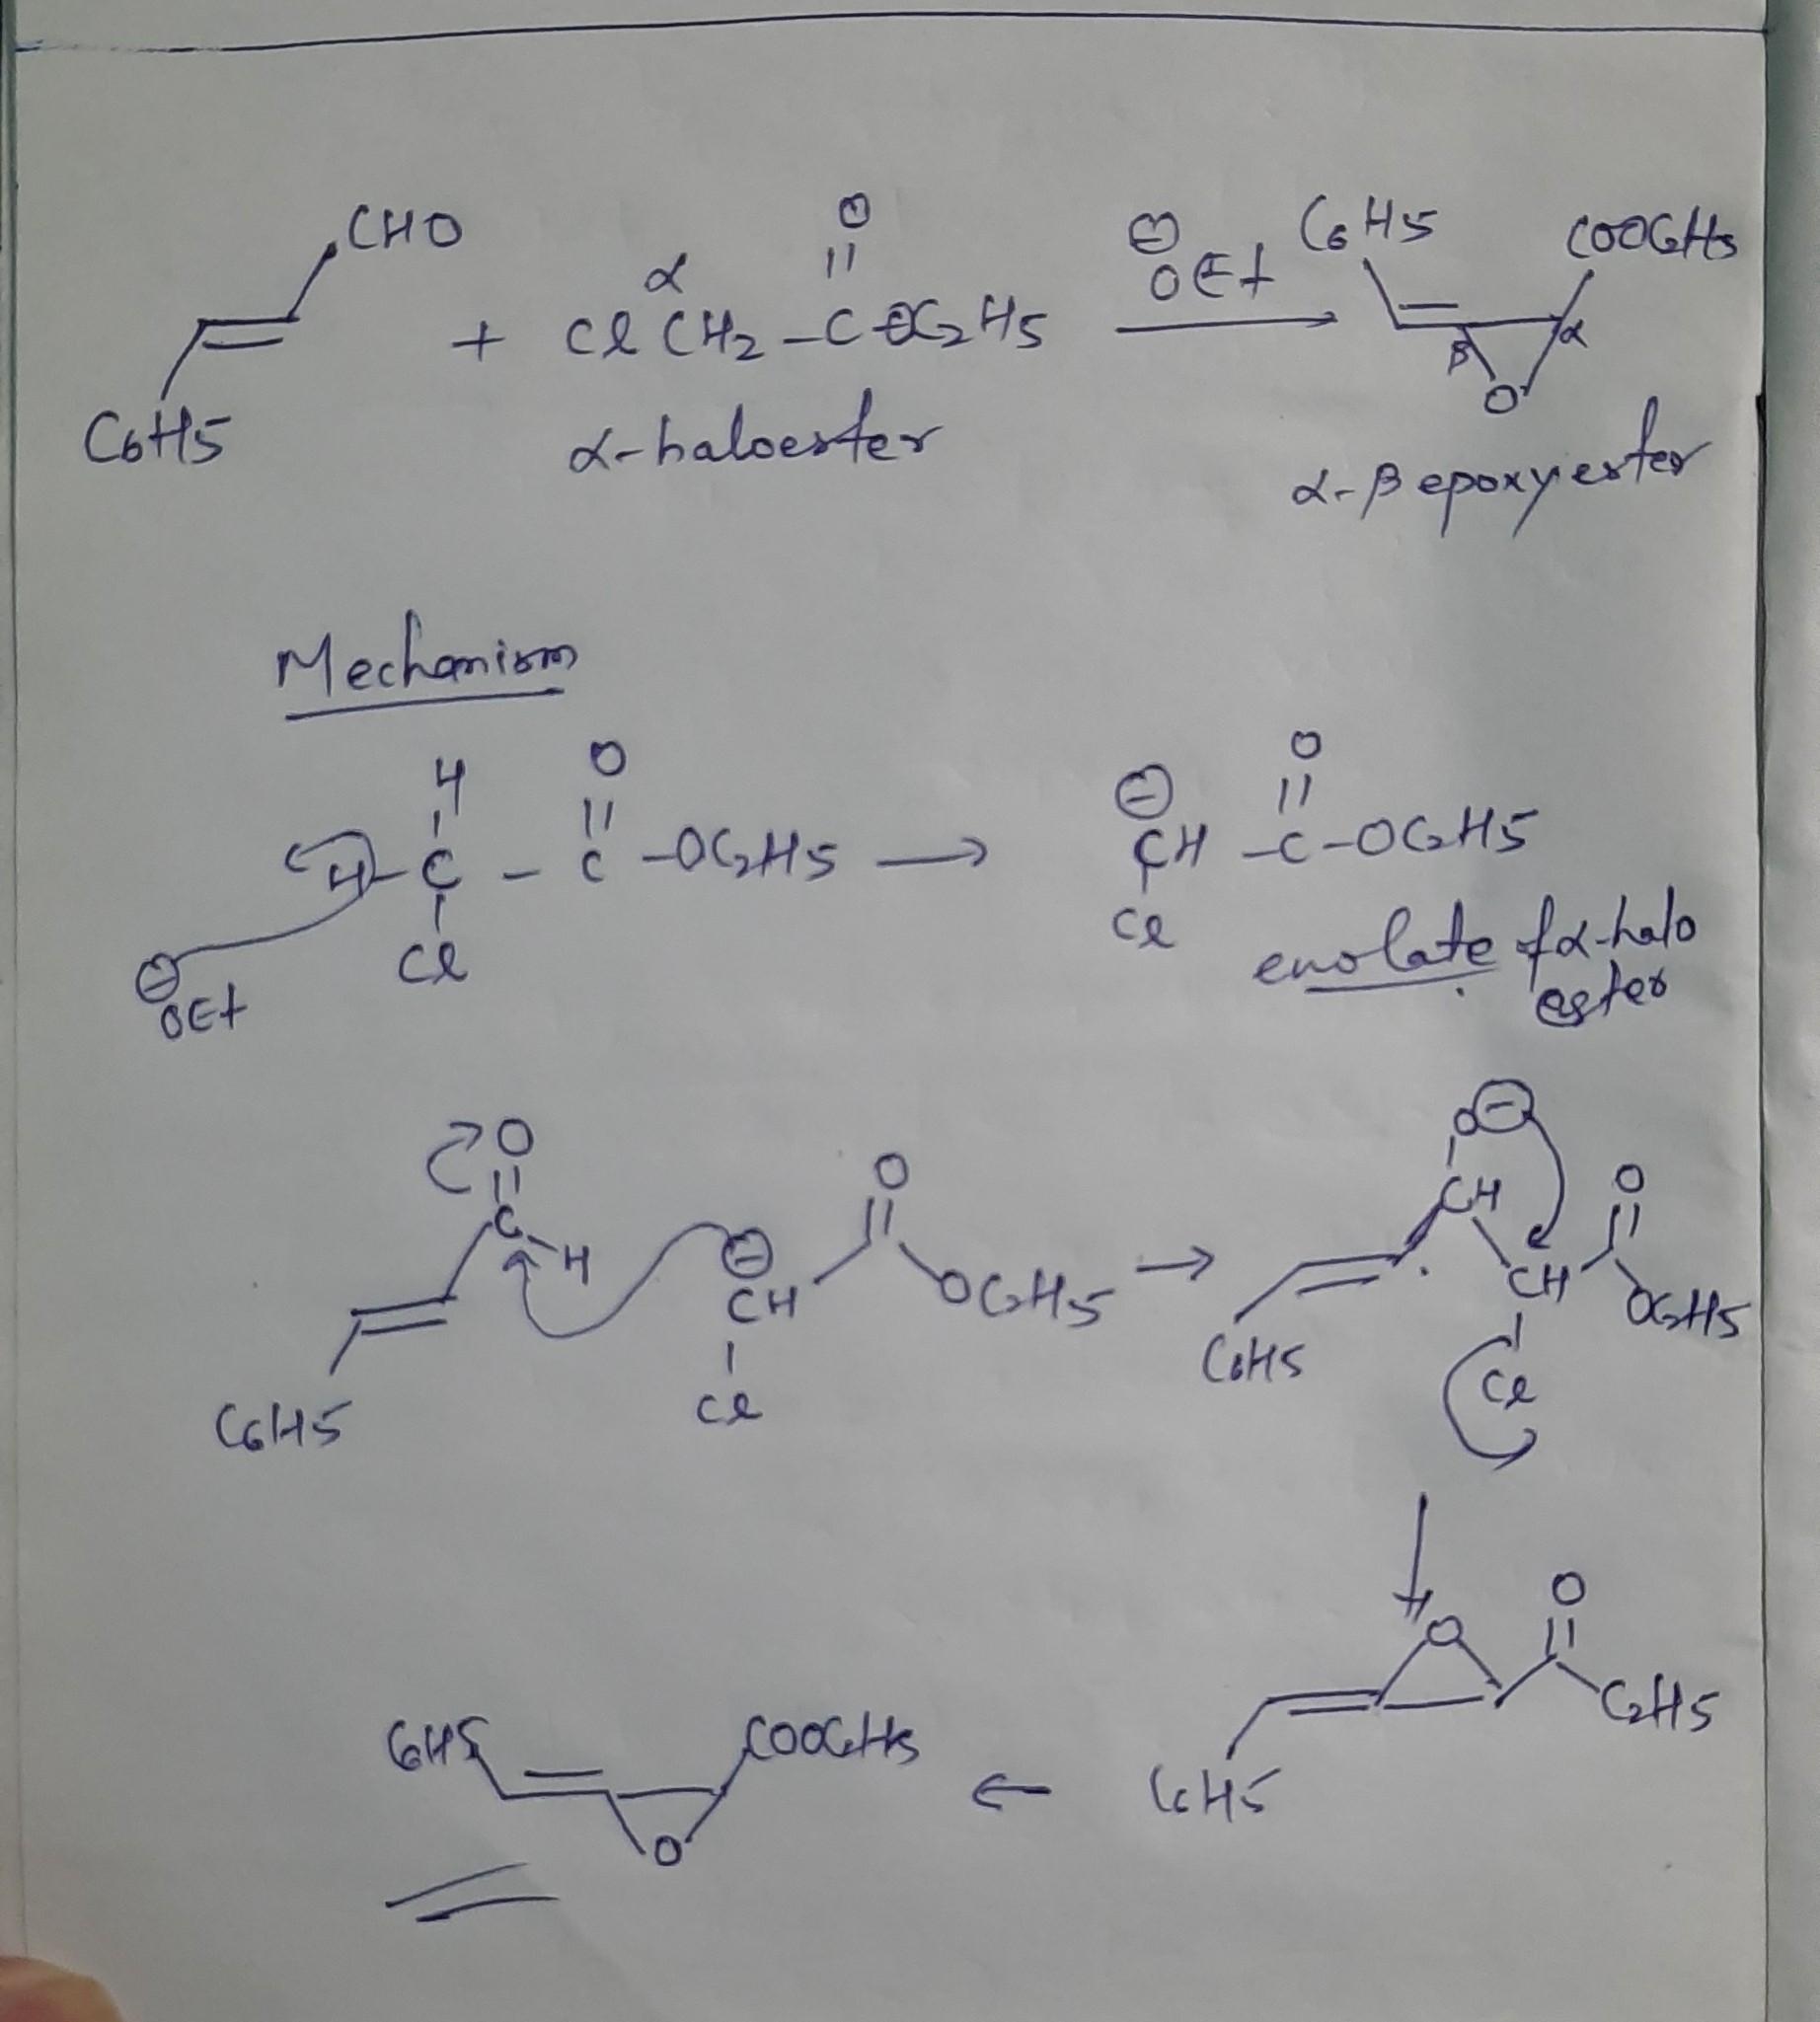 CHO
C6H5
+
α
O
ClCH2-C-OC2H5
α-haloester
⊖
OEt
C6H5
COOC2H5
β
α
O
α-β epoxyester
Mechanism
H
O
H-C-C-OC2H5 →
Cl
⊖
OEt
⊖
O
CH-C-OC2H5
Cl
enolate of α-halo
ester
O
C
H
C6H5
⊖
CH
Cl
O
OC2H5 →
O⊖
CH
CH
O
OC2H5
C6H5
Cl
O
O
C2H5
C6H5
←
C6H5
COOC2H5
O